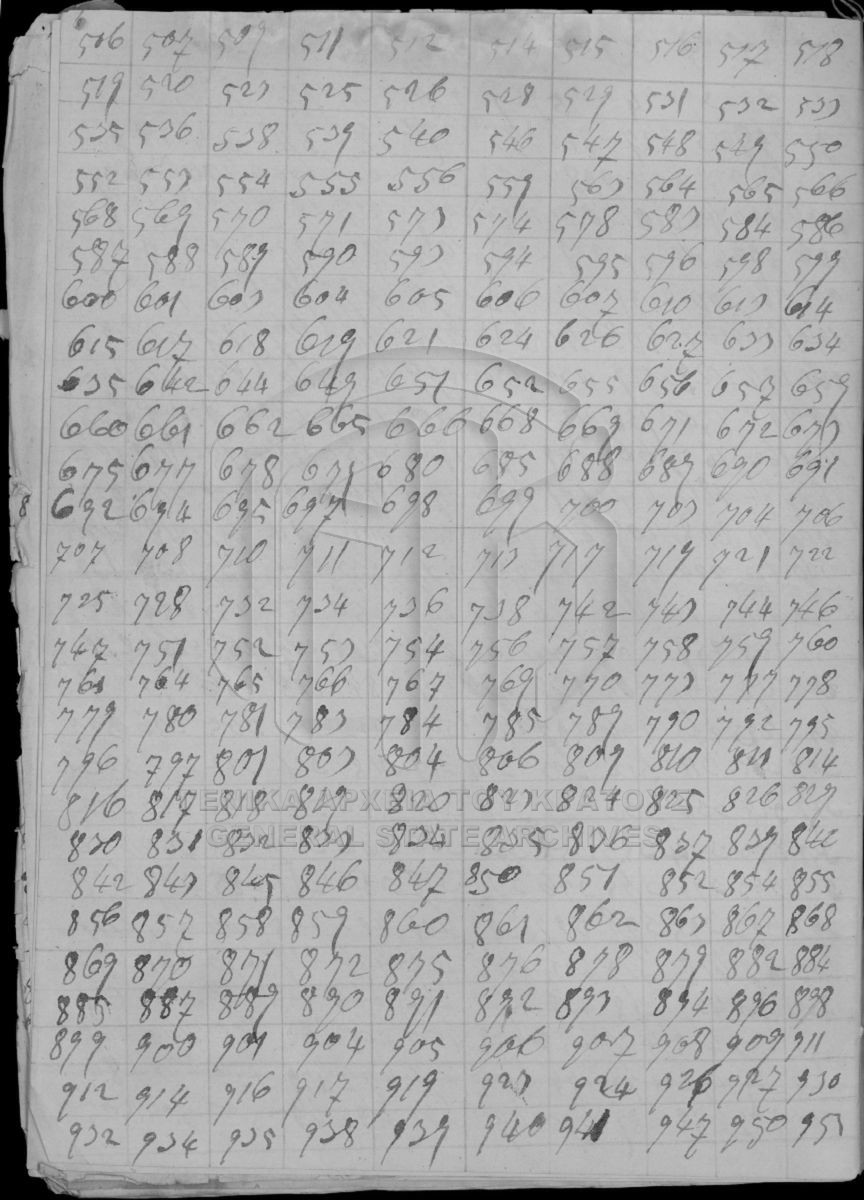 506 507 509 511 512 514 515 516 517 518
519 520 523 525 526 528 529 531 532 533
535 536 538 539 540 546 547 548 549 550
552 553 554 555 556 559 563 564 565 566
568 569 570 571 573 574 578 583 584 586
587 588 589 590 593 594 595 596 598 599
600 601 603 604 605 606 607 610 613 614
615 617 618 619 621 624 626 627 633 634
635 642 644 649 651 652 655 656 657 659
660 661 662 665 666 668 669 671 672 673
675 677 678 679 680 685 688 689 690 691
8 692 694 695 697 698 699 700 703 704 706
707 708 710 711 712 713 717 719 721 722
725 728 732 734 736 738 742 743 744 746
747 751 752 753 754 756 757 758 759 760
761 764 765 766 767 769 770 773 777 778
779 780 781 783 784 785 789 790 792 795
796 797 801 803 804 806 809 810 811 814
816 817 818 819 820 823 824 825 826 829
ΓΕΝΙΚΑ ΑΡΧΕΙΑ ΤΟΥ ΚΡΑΤΟΥΣ
830 831 832 833 834 835 836 837 839 842
GENERAL STATE ARCHIVES
842 843 845 846 847 850 851 852 854 855
856 857 858 859 860 861 862 863 867 868
869 870 871 872 875 876 878 879 882 884
885 887 889 890 891 892 893 894 896 898
899 900 901 904 905 906 907 908 909 911
912 914 916 917 919 923 924 926 927 930
932 934 935 938 939 940 941 947 950 953